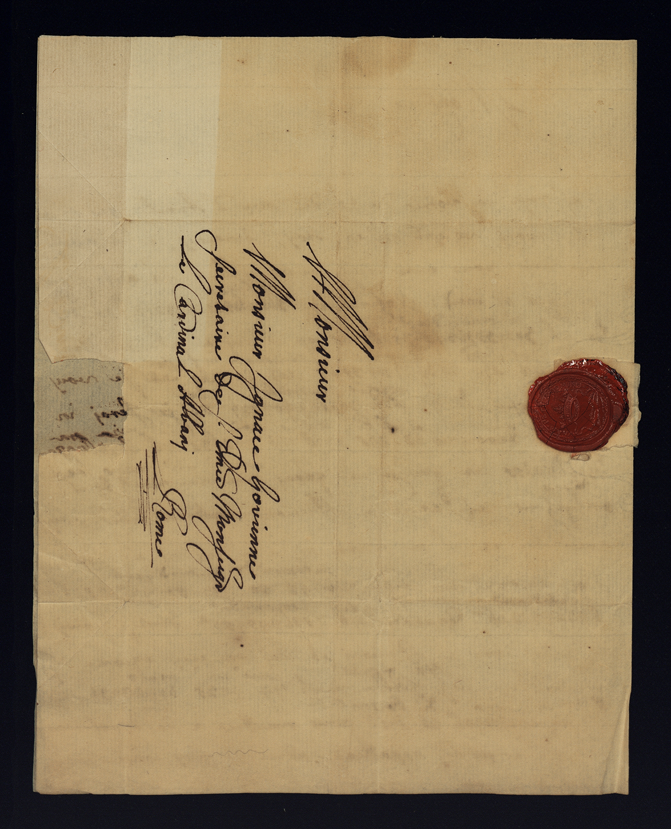 Monsieur
Monsieur Ignace Govienne
Secretaire de S. Emce Monseigr
Le Cardinal Albanj
Rome